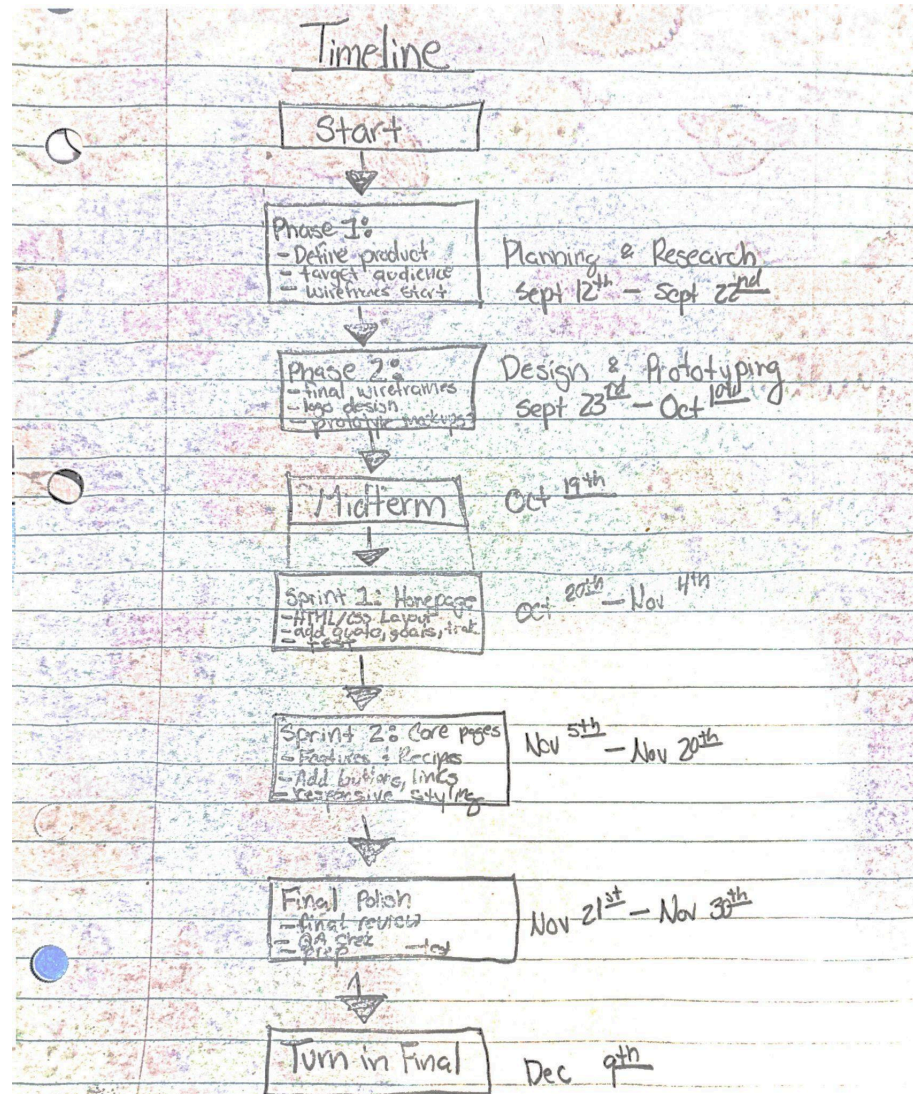 Timeline
Start
Phase 1:
- Define product
- target audience
- wireframes start
Planning & Research
Sept 12th - Sept 22nd
Phase 2:
- final wireframes
- logo design
- prototype mockups?
Design & Prototyping
Sept 23rd - Oct
Midterm
Oct 19th
Sprint 1: Homepage
- HTML/CSS Layout
- add quote, goals,
- test
Oct 20th - Nov 4th
Sprint 2: Core pages
- Features & Recipes
- Add buttons, links
- responsive styling
Nov 5th - Nov 20th
Final Polish
- final review
- QA
- prep - test
Nov 21st - Nov 30th
Turn in Final
Dec 9th